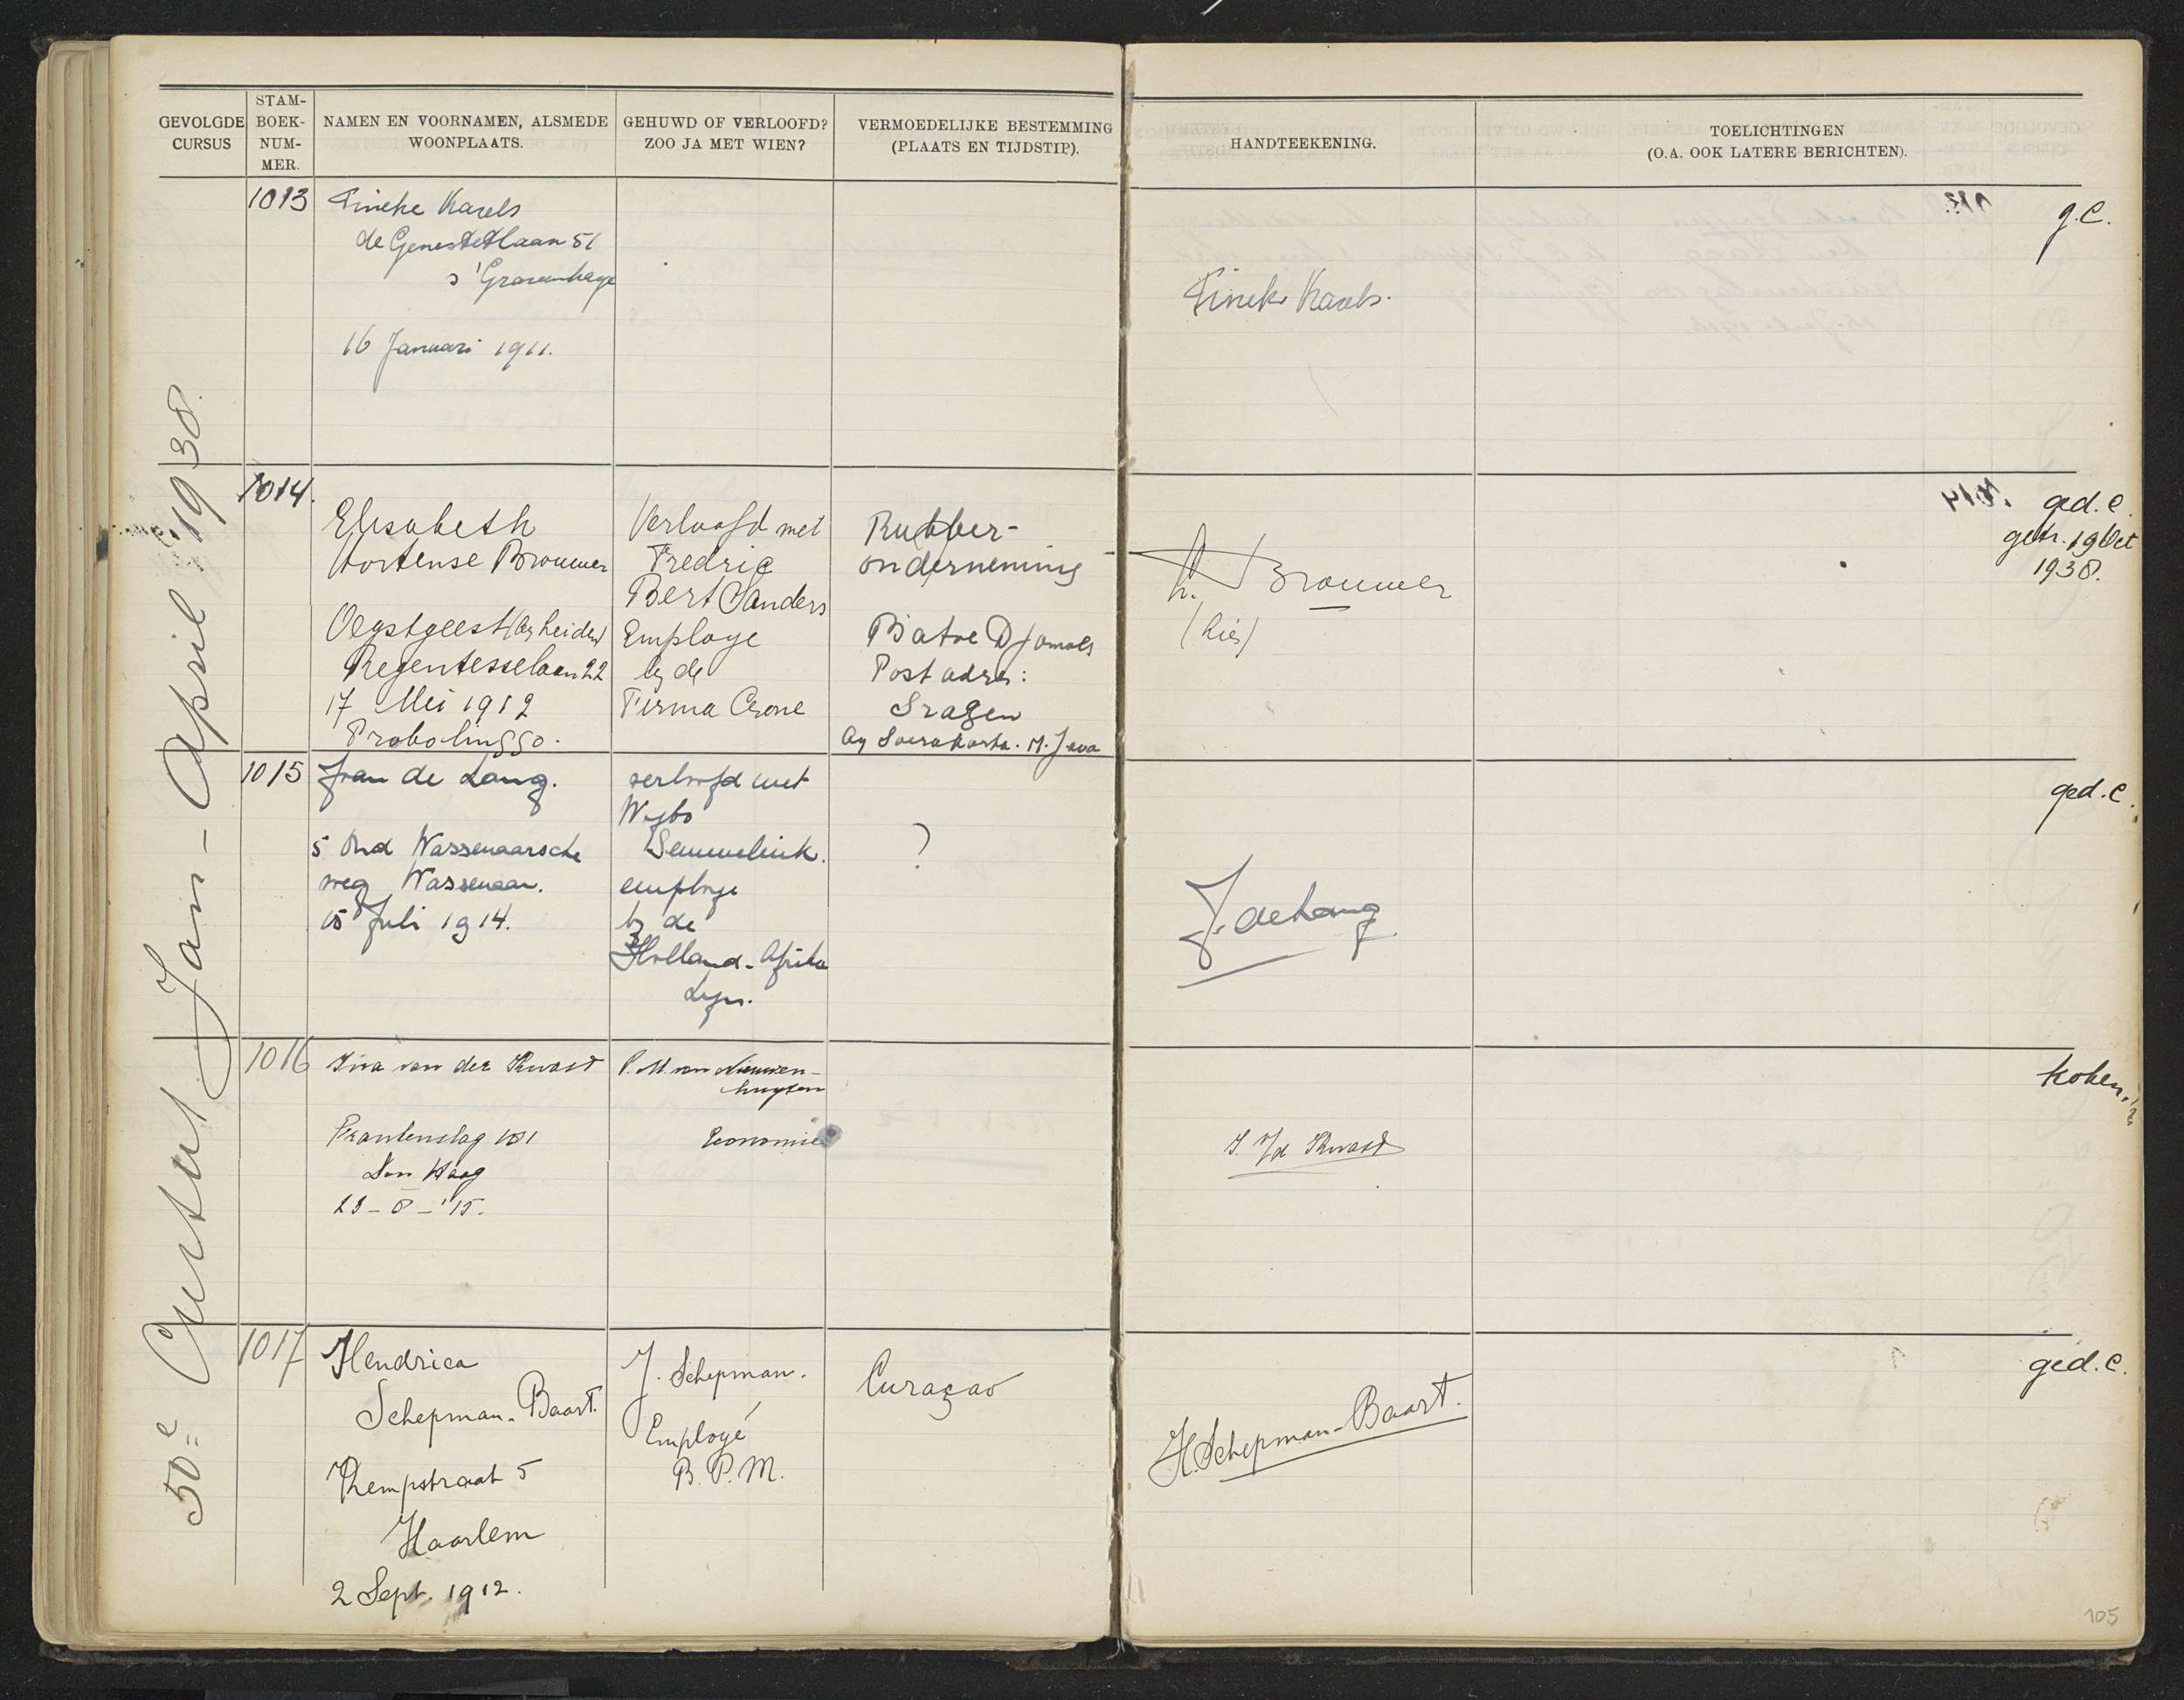 GEVOLGDE CURSUS
STAM-BOEK-NUM-MER.
NAMEN EN VOORNAMEN, ALSMEDE WOONPLAATS.
GEHUWD OF VERLOOFD? ZOO JA MET WIEN?
VERMOEDELIJKE BESTEMMING (PLAATS EN TIJDSTIP).
HANDTEEKENING.
TOELICHTINGEN (O.A. OOK LATERE BERICHTEN).
50e Cursus Jan - April 1938.
1013
Tineke Karels
de Genestetlaan 51
s'Gravenhage
16 Januari 1911.
Tineke Karels.
g.C.
1014.
Elisabeth
Hortense Brouwer
Oegstgeest (by Leiden)
Regentesselaan 22
17 Mei 1912
Probolinggo.
Verloofd met
Fredric
Bert Sanders
Employe
by de
Firma Crone
Rubber-
onderneming
Batoe Djamoes
Post adres:
Sragen
by Soerakarta. M. Java
Brouwer
(Lies)
ged. C.
getr. 19 Oct
1938.
1015
Jean de Lang.
5 Oud Wassenaarsche
weg Wassenaar.
15 Juli 1914.
verloofd met
Wybo
Semmelink.
employe
by de
Holland-Afrika
Lijn.
?
J. de Lang
ged. C.
1016
Ina van der Kwast
Frankenslag 181
Den Haag
23-8-'15.
P. M. van Nieuwen-
huyzen
Economie
I. v/d Kwast
koken.
1017
Hendrica
Schepman-Baart.
Kempstraat 5
Haarlem
2 Sept. 1912.
J. Schepman.
Employé
B.P.M.
Curaçao
H. Schepman-Baart.
ged. C.
105